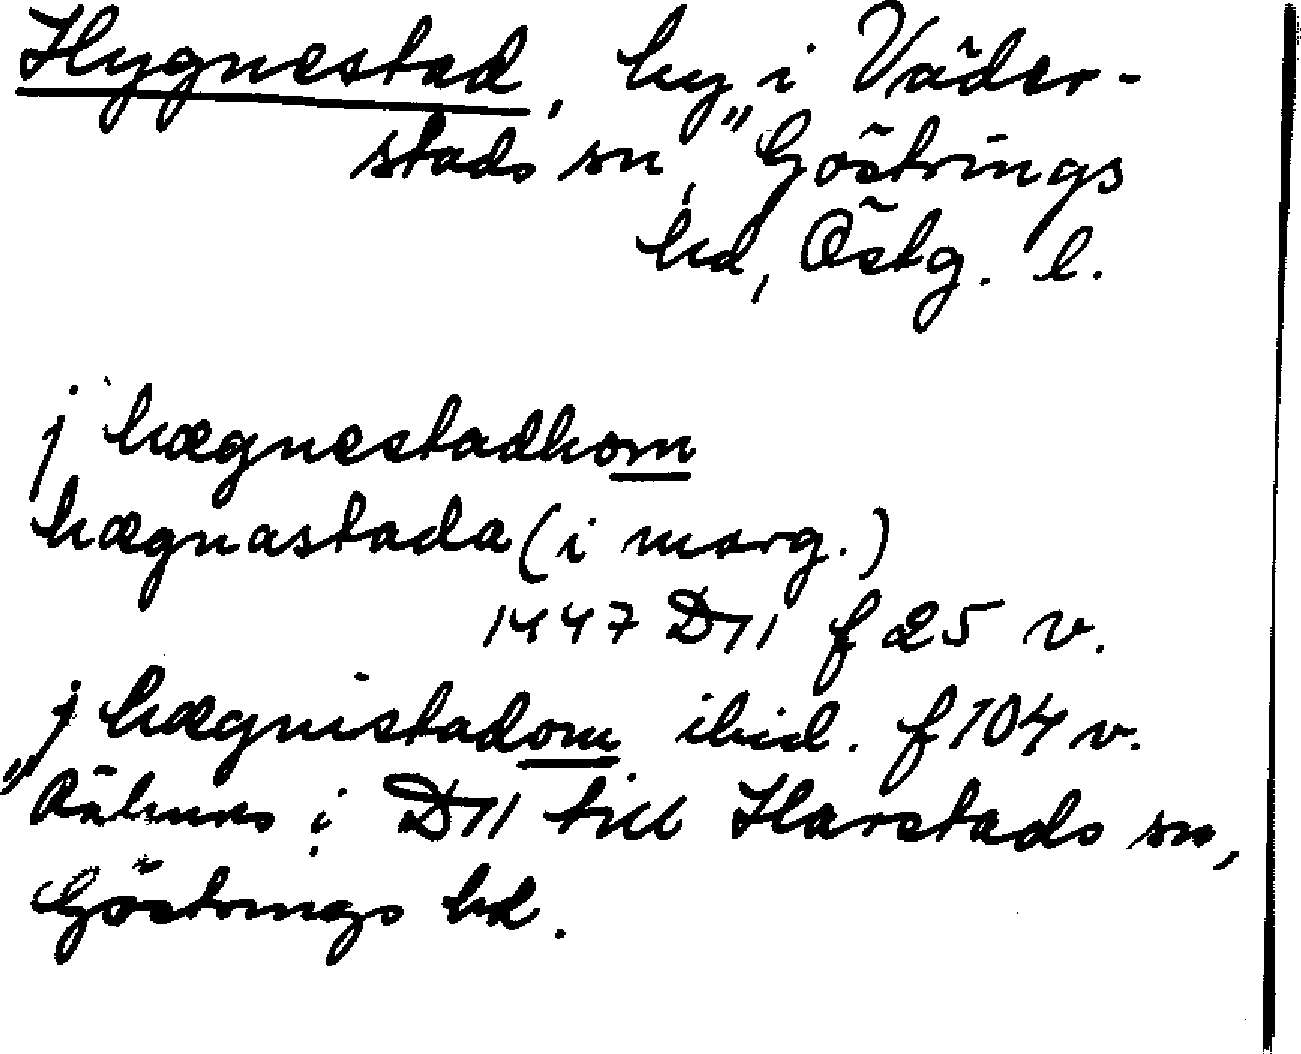 Hygnestad, by i Väder-
stads sn, "Göstrings
hd, Östg. l.
j hægnestadhom
hægnastada (i marg.)
1447 D11 f 25 v.
j hægnistadom ibid. f 104 v.
"Räknas i D11 till Harstads sn,
Göstrings hd.